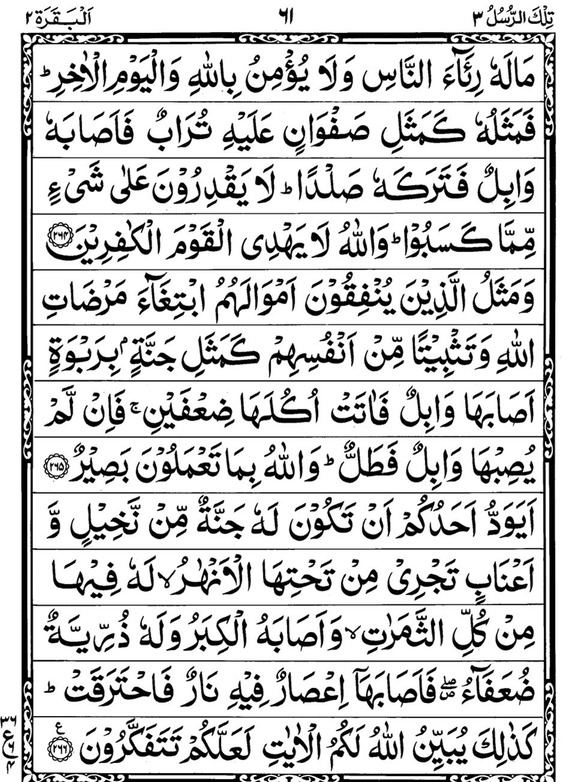 تِلْكَ الرُّسُلُ ٣ ٦١ اَلْبَقَرَة ٢
مَالَهٗ رِئَآءَ النَّاسِ وَلَا يُؤْمِنُ بِاللّٰهِ وَالْيَوْمِ الْاٰخِرِ ؕ
فَمَثَلُهٗ كَمَثَلِ صَفْوَانٍ عَلَيْهِ تُرَابٌ فَاَصَابَهٗ
وَابِلٌ فَتَرَكَهٗ صَلْدًا ؕ لَا يَقْدِرُوْنَ عَلٰى شَیْءٍ
مِّمَّا كَسَبُوْا ؕ وَاللّٰهُ لَا يَهْدِى الْقَوْمَ الْكٰفِرِيْنَ ٢٦٤
وَمَثَلُ الَّذِيْنَ يُنْفِقُوْنَ اَمْوَالَهُمُ ابْتِغَآءَ مَرْضَاتِ
اللّٰهِ وَتَثْبِيْتًا مِّنْ اَنْفُسِهِمْ كَمَثَلِ جَنَّةٍۭ بِرَبْوَةٍ
اَصَابَهَا وَابِلٌ فَاٰتَتْ اُكُلَهَا ضِعْفَيْنِ ۚ فَاِنْ لَّمْ
يُصِبْهَا وَابِلٌ فَطَلٌّ ؕ وَاللّٰهُ بِمَا تَعْمَلُوْنَ بَصِيْرٌ ٢٦٥
اَيَوَدُّ اَحَدُكُمْ اَنْ تَكُوْنَ لَهٗ جَنَّةٌ مِّنْ نَّخِيْلٍ وَّ
اَعْنَابٍ تَجْرِىْ مِنْ تَحْتِهَا الْاَنْهٰرُ ۙ لَهٗ فِيْهَا
مِنْ كُلِّ الثَّمَرٰتِ ۙ وَاَصَابَهُ الْكِبَرُ وَلَهٗ ذُرِّيَّةٌ
ضُعَفَآءُ ۖ فَاَصَابَهَاۤ اِعْصَارٌ فِيْهِ نَارٌ فَاحْتَرَقَتْ ؕ
كَذٰلِكَ يُبَيِّنُ اللّٰهُ لَكُمُ الْاٰيٰتِ لَعَلَّكُمْ تَتَفَكَّرُوْنَ ع ٢٦٦
٣٦
ع
٤